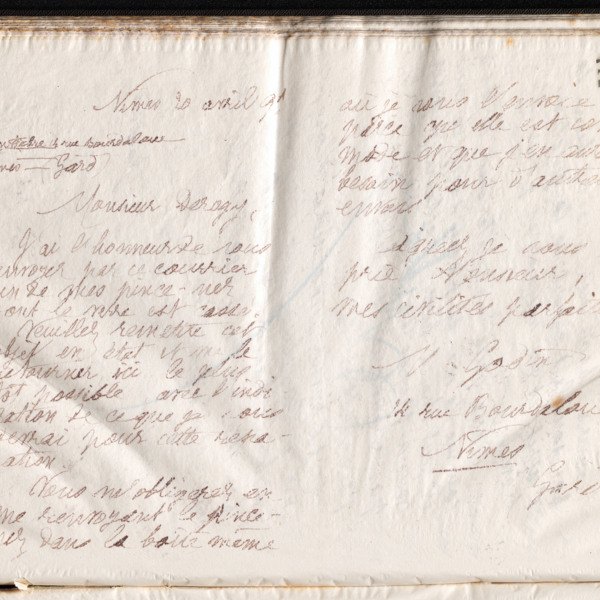 Nimes 20 avril 9
4 rue Bourdaloue
Gard
Monsieur Derogy,
J'ai l'honneur de vous
envoyer par ce courrier
un de mes pince-nez
dont le verre est cassé.
Veuillez remettre cet
objet en état et me le
retourner ici le plus
tôt possible avec l'indi-
cation de ce que je vous
devrai pour cette répa-
ration.
Vous m'obligerez en
me renvoyant le pince-
nez dans la boîte même
où je vous l'envoie
parce qu'elle est com
mode et que j'en aurai
besoin pour d'autres
envois.
Agréez je vous
prie Monsieur,
mes civilités parfaites
M Godin
4 rue Bourdaloue
Nimes
Gard